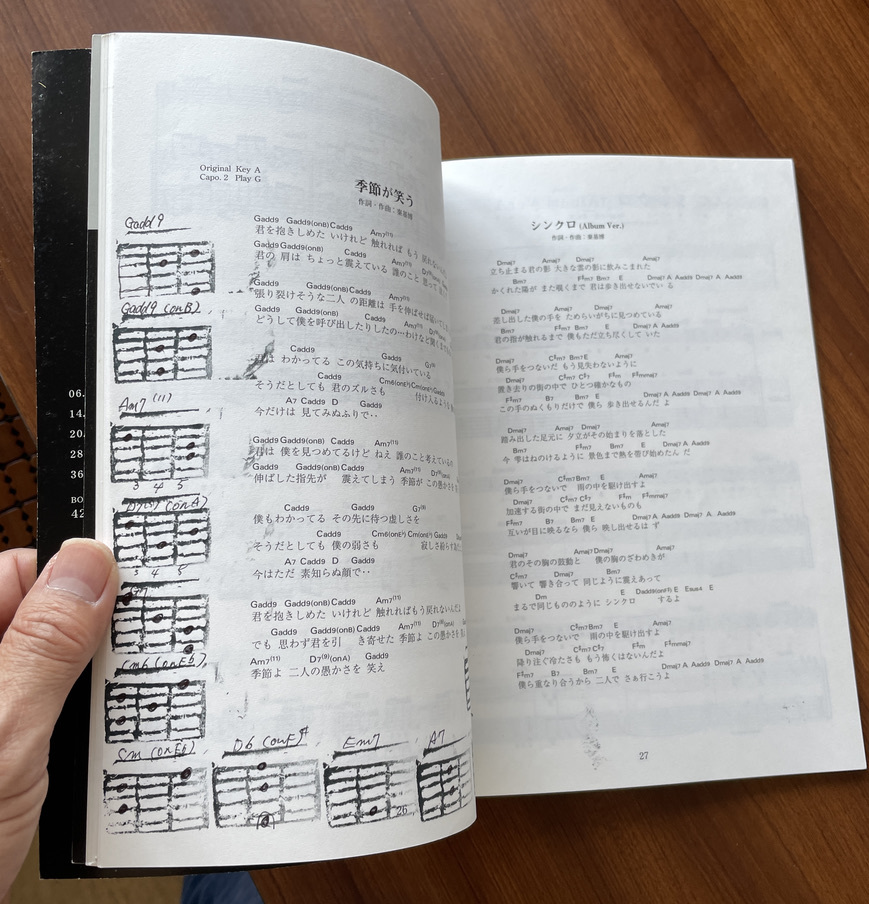 06.
14.
20.
28
36
BO
42
Original Key A
Capo. 2 Play G
季節が笑う
作詞・作曲：秦基博
Gadd9
Gadd9 (onB)
Am7 (11)
3 4 5
(onA)
3 4 5
Cm6 (onE♭)
Cm (onE♭)
D6 (onF#)
Em7
A7
Gadd9 Gadd9(onB) Cadd9 Am7(11)
君を抱きしめた いけれど 触れれば もう 戻れない
Gadd9 Gadd9(onB) Cadd9 Am7(11)
君の 肩は ちょっと震えている 誰のこと 思って
Gadd9 Gadd9(onB) Cadd9 Am7(11)
張り裂けそうな二人 の距離は 手を伸ばせば届いて
Gadd9 Gadd9(onB) Cadd9 Am7(11) D7(9)(onA)
どうして僕を呼び出したりしたの…わけなど聞くまで
Cadd9 G7(9)
は わかってる この気持ちに気付いている
Cadd9 Cm6(onE♭) Cm(onE♭) Gadd9
そうだとしても 君のズルさも 付け入るような
A7 Cadd9 D Gadd9
今だけは 見てみぬふりで‥
Gadd9 Gadd9(onB) Cadd9 Am7(11)
君は 僕を見つめてるけど ねえ 誰のこと考えているの
Gadd9 Gadd9(onB) Cadd9 Am7(11) D7(9)(onA)
伸ばした指先が 震えてしまう 季節が この愚かさを
Cadd9 G7(9)
僕もわかってる その先に待つ虚しさを
Cadd9 Cm6(onE♭) Cm(onE♭) Gadd9
そうだとしても 僕の弱さも 寂しさ紛らす
A7 Cadd9 D Gadd9
今はただ 素知らぬ顔で‥
Gadd9 Gadd9(onB) Cadd9 Am7(11)
君を抱きしめた いけれど 触れればもう戻れないんだよ
Gadd9 Gadd9(onB) Cadd9 Am7(11) D7(9)(onA) Gadd9
でも 思わず君を引 き寄せた 季節よ この愚かさを
Am7(11) D7(9)(onA) Gadd9
季節よ 二人の愚かさを 笑え
26
シンクロ (Album Ver.)
作詞・作曲：秦基博
Dmaj7 Amaj7 Dmaj7 Amaj7
立ち止まる君の影 大きな雲の影に飲みこまれた
Bm7 F#m7 Bm7 E Dmaj7 A Aadd9 Dmaj7 A Aadd9
かくれた陽が また覗くまで 君は歩き出せないでい る
Dmaj7 Amaj7 Dmaj7 Amaj7
差し出した僕の手を ためらいがちに見つめている
Bm7 F#m7 Bm7 E Dmaj7 A Aadd9
君の指が触れるまで 僕もただ立ち尽くして いた
Dmaj7 C#m7 Bm7 E Amaj7
僕ら手をつないだ もう見失わないように
Dmaj7 C#m7 C#7 F#m F#mmaj7
置き去りの街の中で ひとつ確かなもの
F#m7 B7 Bm7 E Dmaj7 A Aadd9 Dmaj7 A Aadd9
この手のぬくもりだけで 僕ら 歩き出せるんだ よ
Dmaj7 Amaj7 Dmaj7 Amaj7
踏み出した足元に 夕立がその始まりを落とした
Bm7 F#m7 Bm7 E Dmaj7 A Aadd9
今 雫はねのけるように 景色まで熱を帯び始めたん だ
Dmaj7 C#m7 Bm7 E Amaj7
僕ら手をつないで 雨の中を駆け出すよ
Dmaj7 C#m7 C#7 F#m F#mmaj7
加速する街の中で まだ見えないものも
F#m7 B7 Bm7 E Dmaj7 A Aadd9 Dmaj7 A Aadd9
互いが目に映るなら 僕ら 映し出せるは ず
Dmaj7 Amaj7 Dmaj7 Amaj7
君のその胸の鼓動と 僕の胸のざわめきが
C#m7 Dmaj7 Bm7
響いて 響き合って 同じように震えあって
Dm E Dadd9(onF#) E Esus4 E
まるで同じもののように シンクロ するよ
Dmaj7 C#m7 Bm7 E Amaj7
僕ら手をつないで 雨の中を駆け出すよ
Dmaj7 C#m7 C#7 F#m F#mmaj7
降り注ぐ冷たさも もう怖くはないんだよ
F#m7 B7 Bm7 E Dmaj7 A Aadd9 Dmaj7 A Aadd9
僕ら重なり合うから 二人で さぁ行こうよ
27